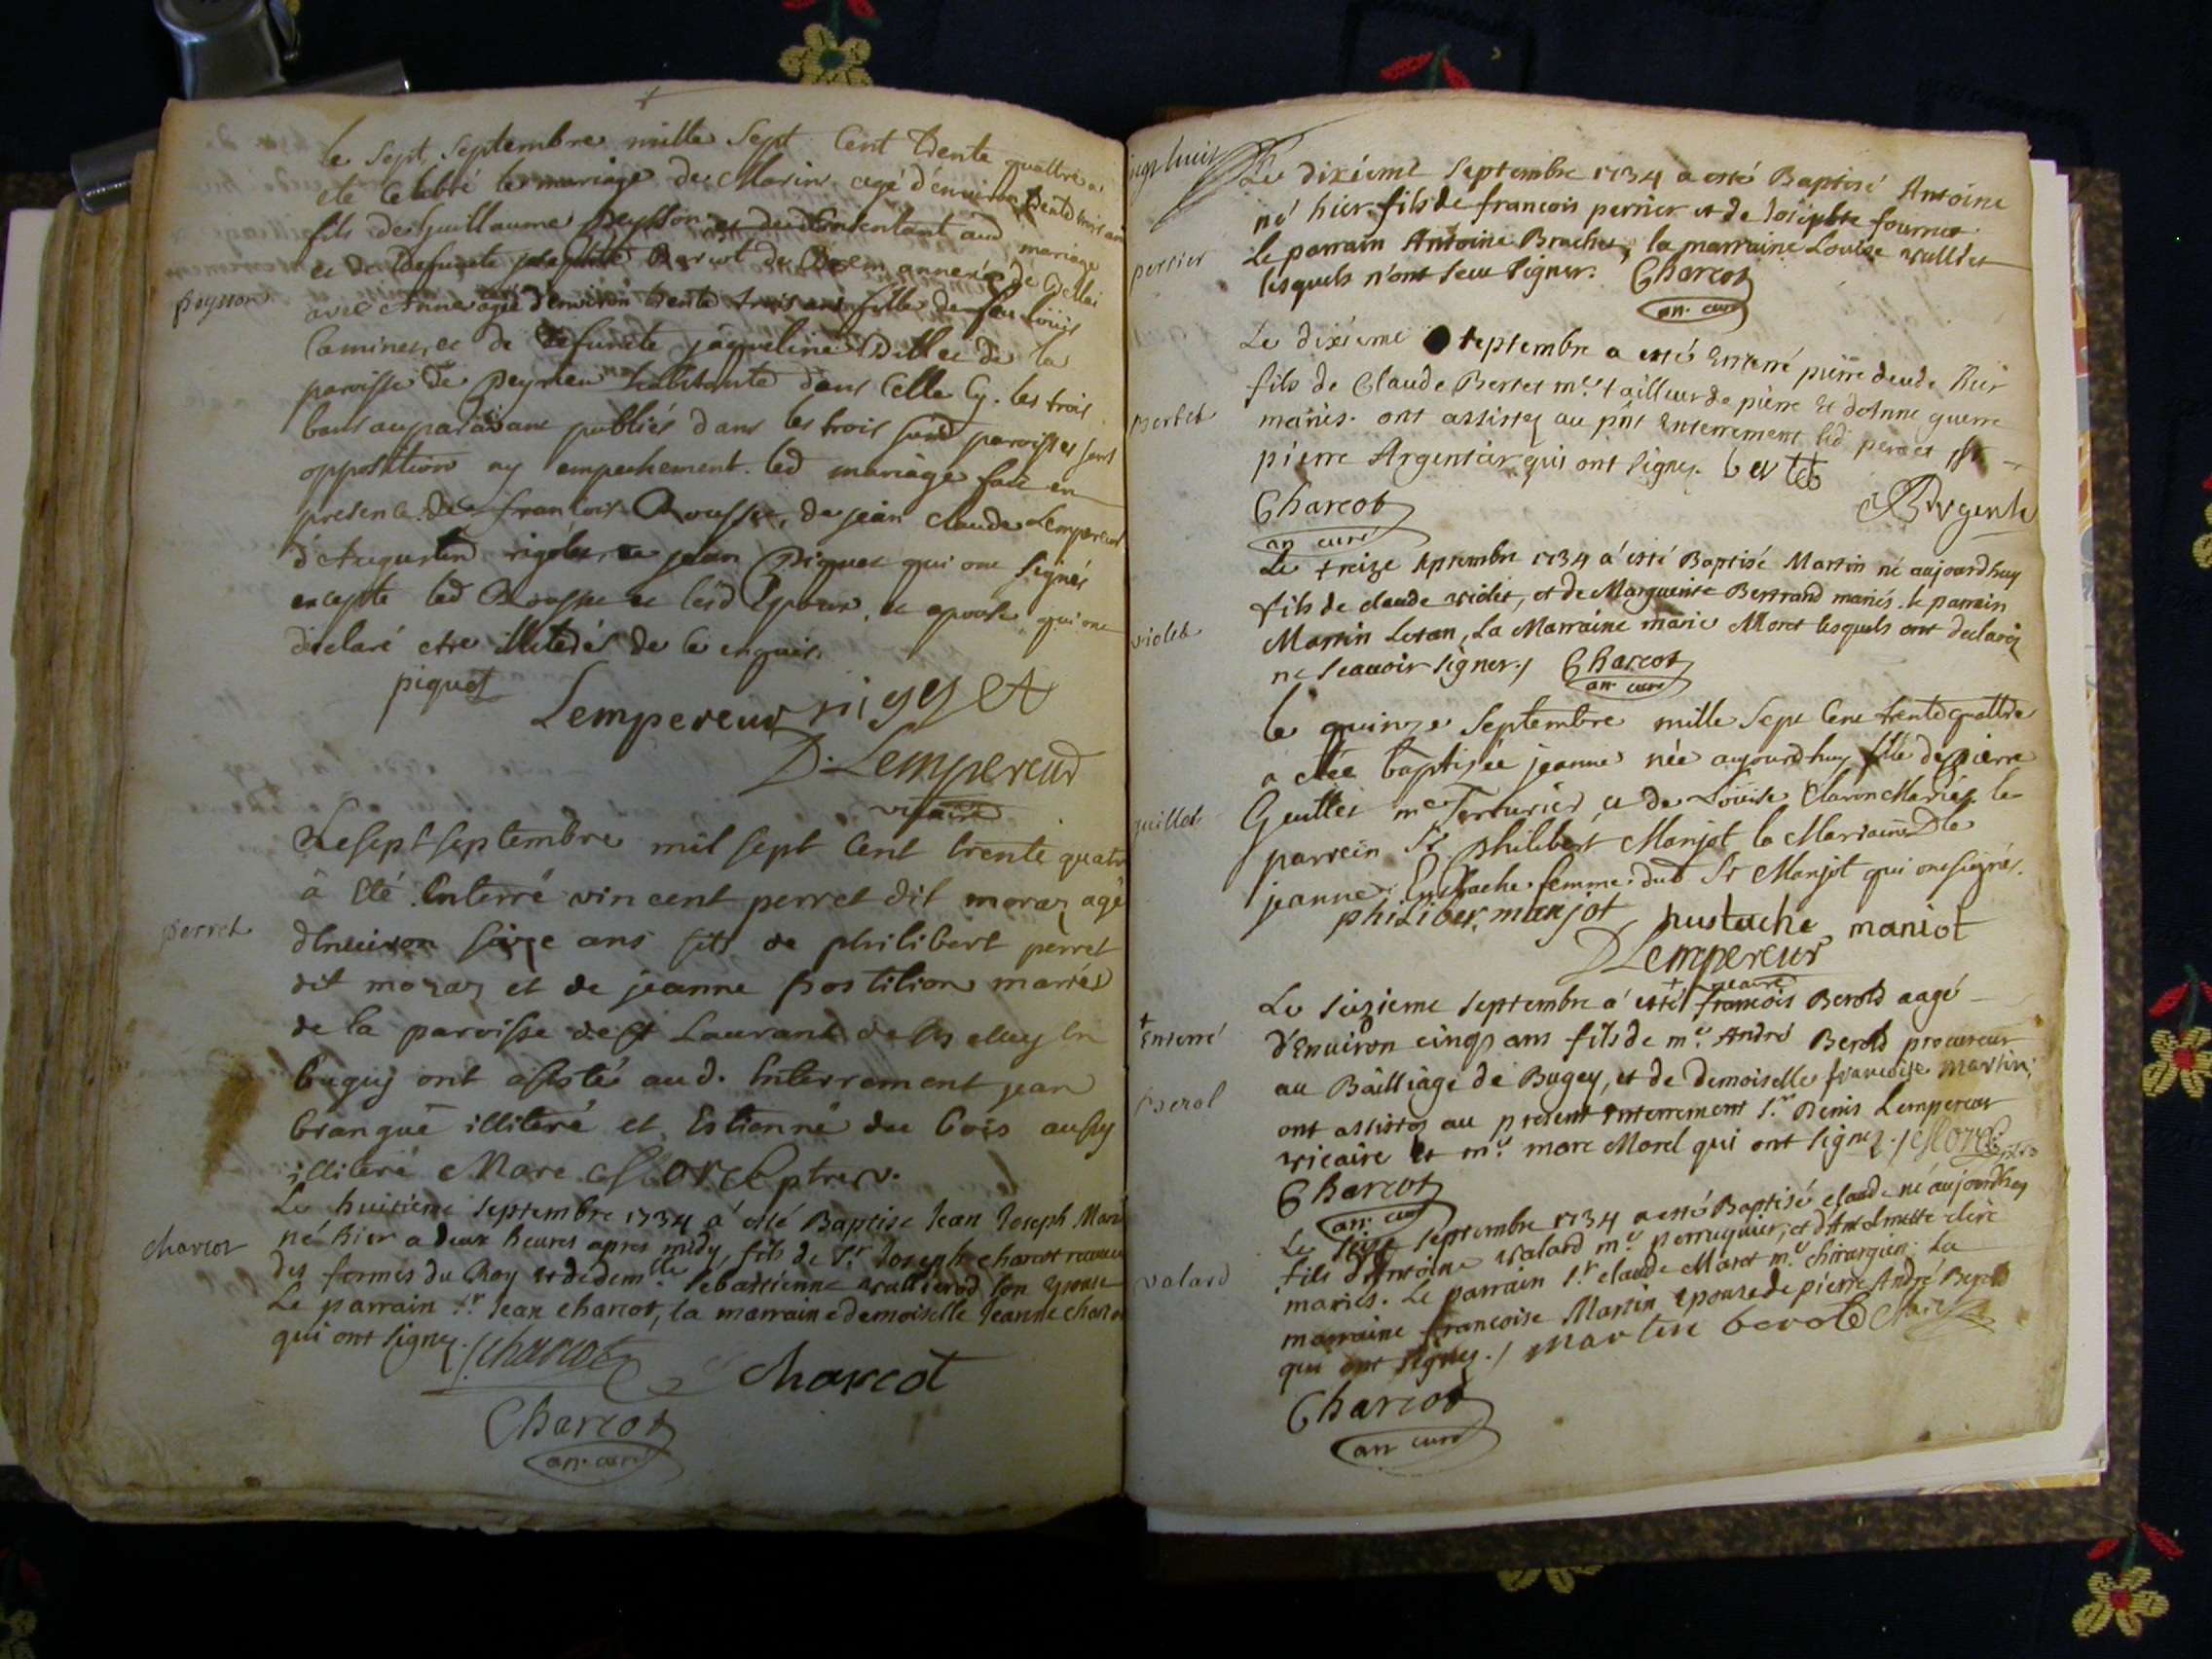 le sept septembre mille sept cent trente quattre a
ete celebré le mariage de Marin agé d'environ trente trois ans
fils de Guillaume peysson consentant aud mariage
et de defunte josephte annexe de
peysson
avec Anne agée d'environ trente trois ans fille de feu Loüis
et de defuncte jaqueline de la
paroisse de peyrieu habitante dans celle cy. les trois
bans auparavant publiés dans les trois susd paroisses sans
opposition ny empechement. led mariage fait en
presence de francois Rousset, de jean claude Lempereur
d'Augustin et jean piquet qui ont signés
excepté led Rousset et lesd Epoux et epouse qui ont
declaré etre illiterés de ce enquis.
piquet
Lempereur
D. Lempereur
vicaire
Le sept septembre mil sept cent trente quatre
â Eté Enterré vincent perret dit moraz agé
perret
d'Environ seize ans fils de philibert perret
dit moraz et de jeanne postilion mariés
de la paroisse de st Laurant
bugey ont assistés aud. Enterrement jean
brangue illiteré et Estienne du bois aussy
illiteré Marc Morel ptre v.
Le huitieme septembre 1734 a esté Baptisé Jean Joseph Marie
charcot
né hier a deux heures apres midy, fils de Sr. Joseph charcot
des fermes du Roy et de demlle. sebastienne son Epouse
Le parrain sr Jean charcot, la marraine demoiselle Jeanne charcot
qui ont signez. Charcot
charcot
Charcot
an. curé
huit
Le dixieme septembre 1734 a esté Baptisé Antoine
né hier fils de francois perrier et de Josephte fournier.
perrier
Le parrain Antoine Brachet, la marraine Louise vallier
lesquels n'ont sceu signer. Charcot
an. curé
Le dixieme septembre a esté Enterré pierre decedé hier
fils de Claude Bertet me. tailleur de pierre et d'Anne guerre
Bertet
mariés. ont assistez au pnt Enterrement led pere et Sr
pierre Argentier qui ont signez. bertet
Charcot
an curé
Le treize septembre 1734 a esté Baptisé Martin né aujourd'huy
fils de claude violet, et de Marguerite Bertrand mariés. le parrain
violet
Martin Letan, La Marraine marie Moret lesquels ont declarez
ne scavoir signer. / Charcot
an. curé
le quinze septembre mille sept cent trente quattre
a etée baptisée jeanne née aujourdhuy fille de pierre
guillet
me. et de Loüise Claron Mariés. le
parrein Sr. philibert Manjot la Marraine Dle
jeanne Eustache femme dud Sr Manjot qui ont signés.
philiber manjot
eustache manjot
D Lempereur
vicaire
Le seizieme septembre a esté francois Berold aagé
+
Enterré
d'Environ cinq ans fils de me. André Berold procureur
Berol
au Bâilliage de Bugey, et de demoiselle francoise Martin,
ont assistez au present enterrement Sr. Denis Lempereur
vicaire et me. marc Morel qui ont signez. / Morel ptre
Charcot
an curé
Le seize septembre 1734 a esté Baptisé claude né aujourdhuy
valard
fils d'Antoine valard me. perruquier, et d'Anthelmette clere
mariés. Le parrain Sr. claude Maret me. chirurgien. La
marraine francoise Martin epouse de pierre André Berold
qui ont signez. / Martin berold
Charcot
an curé